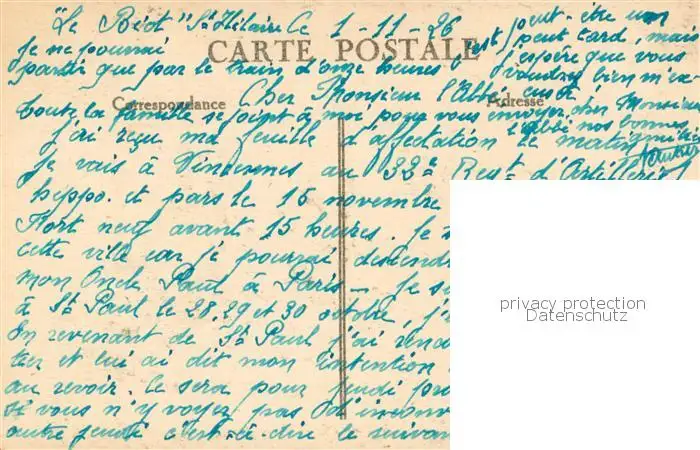 "Le Riot" St Hilaire Ce 1-11-26
CARTE POSTALE
Correspondance
Adresse
Cher Monsieur l'Abbé
J'ai reçu ma feuille d'affectation ce matin
Je vais à Vincennes au 32e Regt d'Artillerie
hippo. et pars le 15 novembre
Fort neuf avant 15 heures. Je
cette ville car je pourrai descend
mon Oncle Paul à Paris - Je
à St Paul le 28, 29 et 30 octobre, j'
En revenant de St Paul j'ai
et lui ai dit mon intention
au revoir. Ce sera pour jeudi
si vous n'y voyez pas d'
autre jeudi c'est-à-dire le suivan
Je ne pourrai
partir que par le train d'onze heures c'est
peut-être un
peu tard, mais
j'espère que vous
voudrez bien m'ex
cuser
Toute la famille se joint à moi pour vous envoyer cher Monsieur
l'Abbé nos bonnes
amitiés
privacy protection
Datenschutz